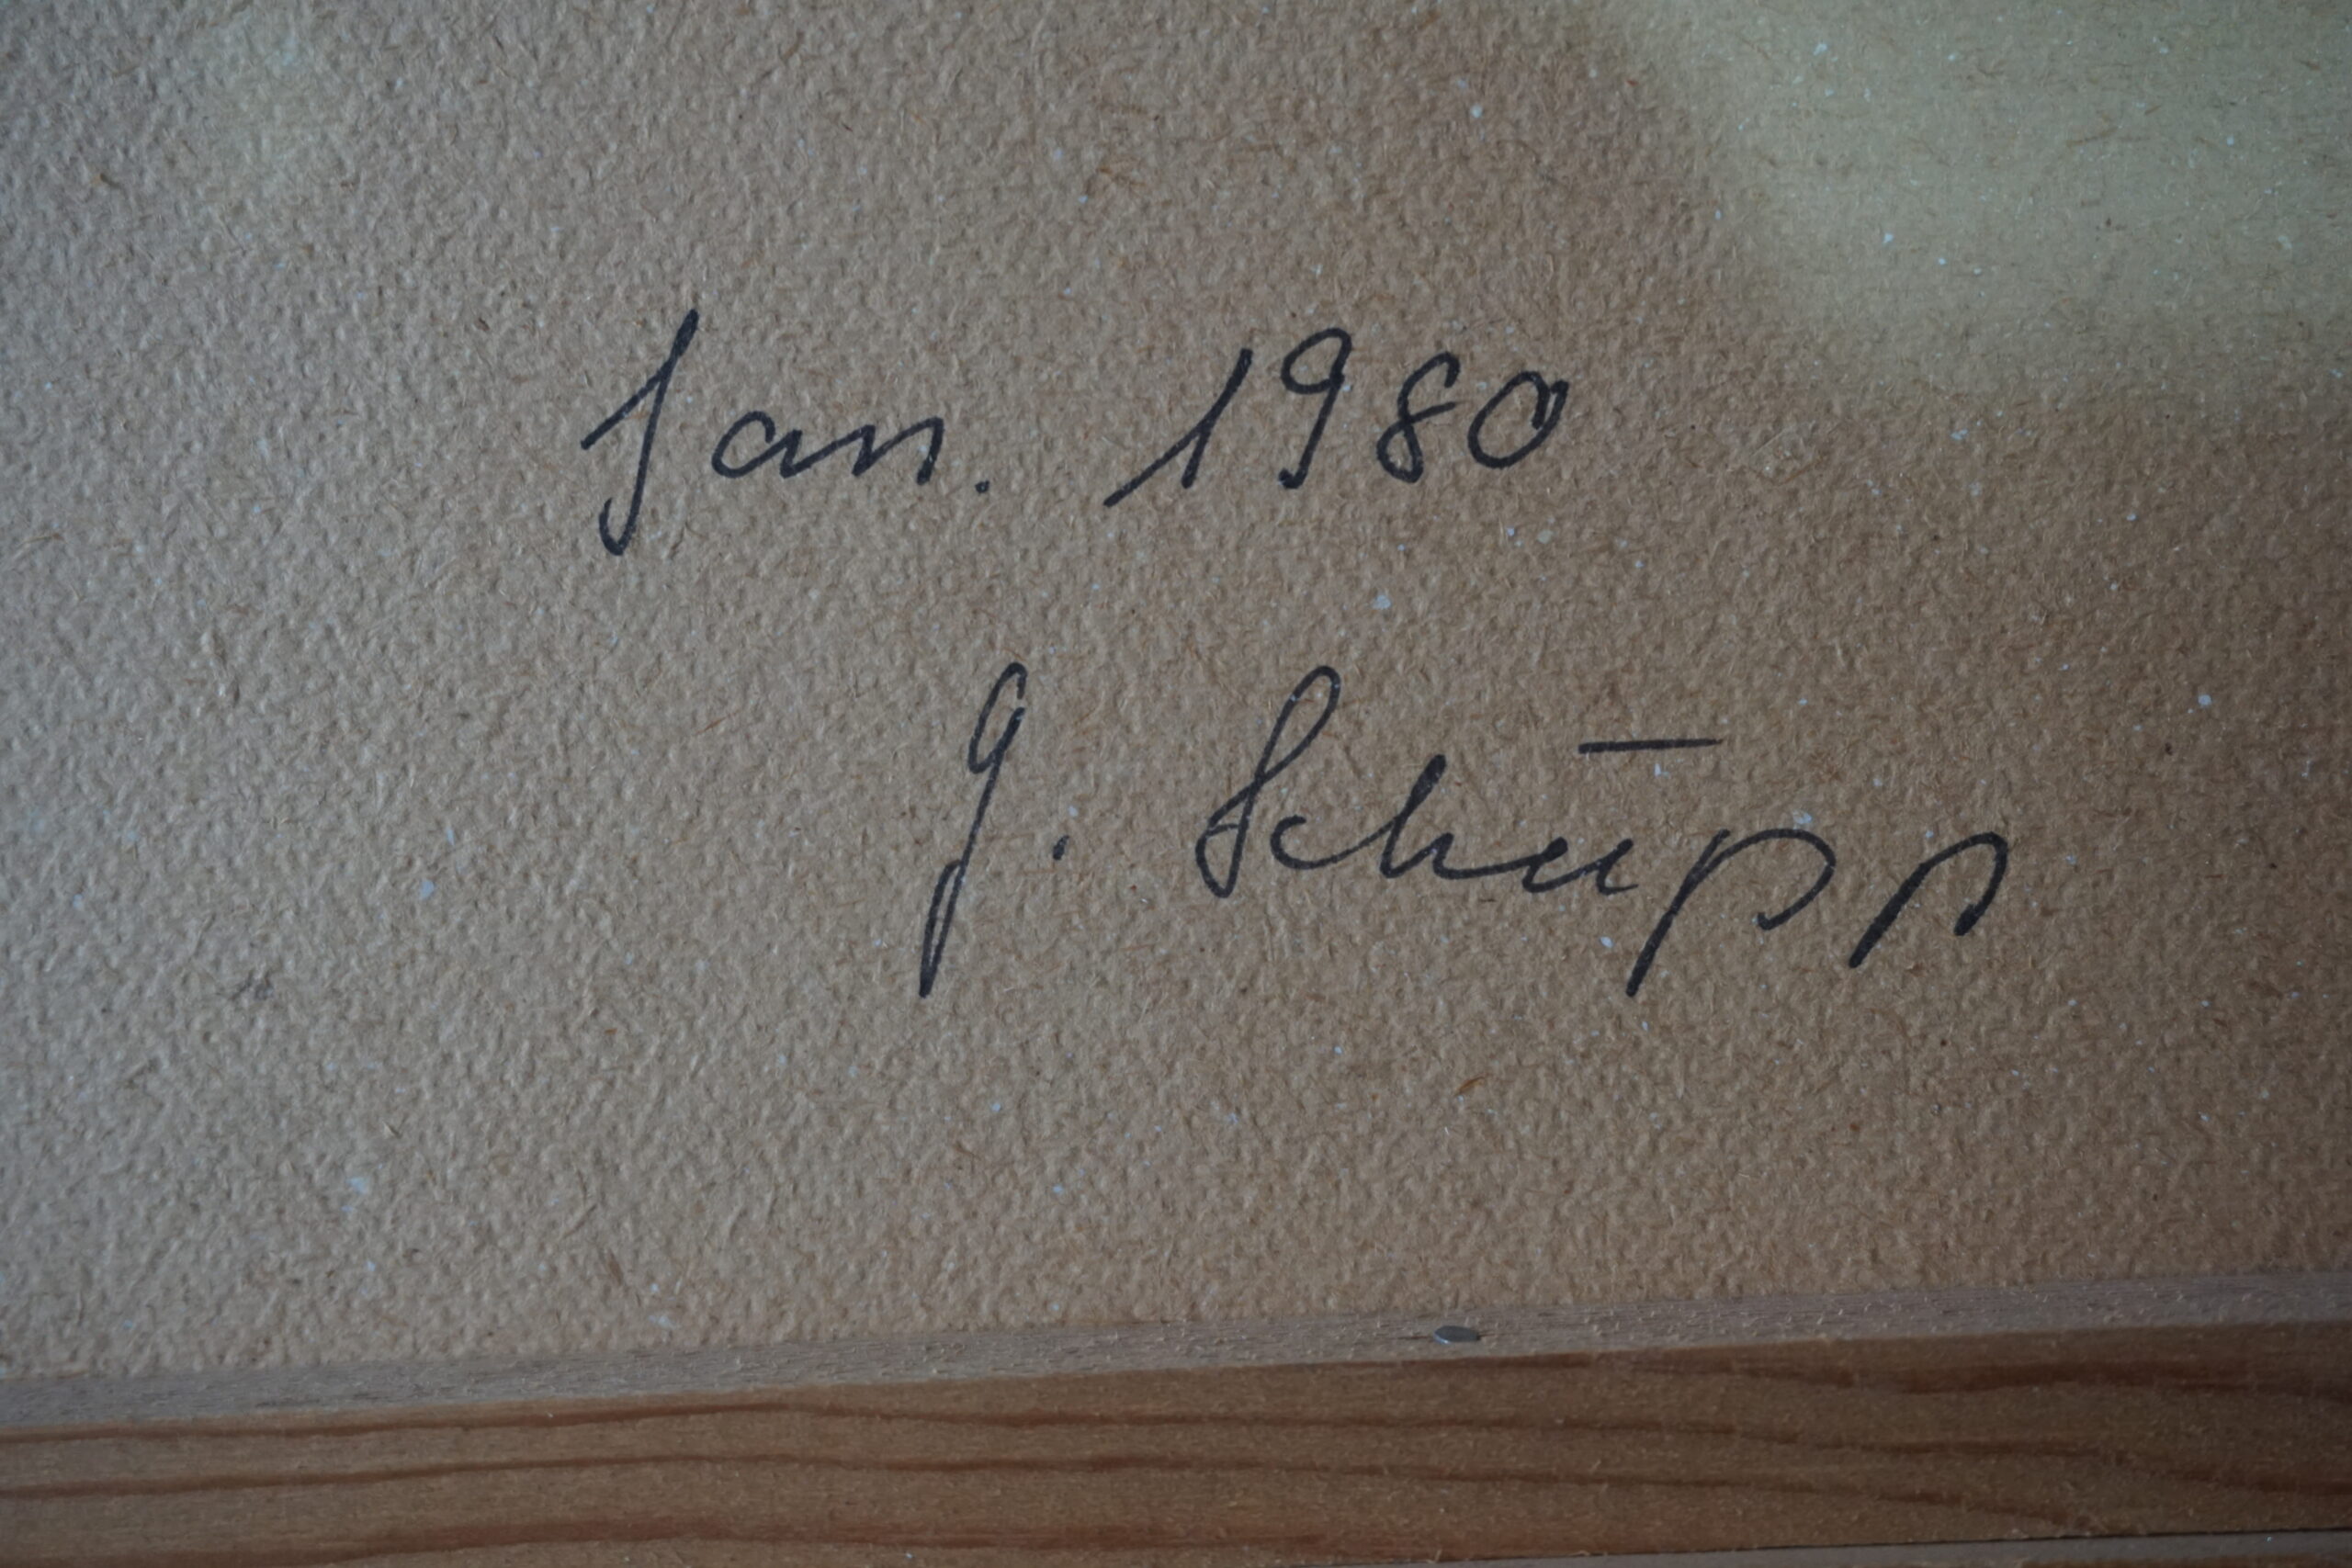 Jan. 1980
G. Schüpp